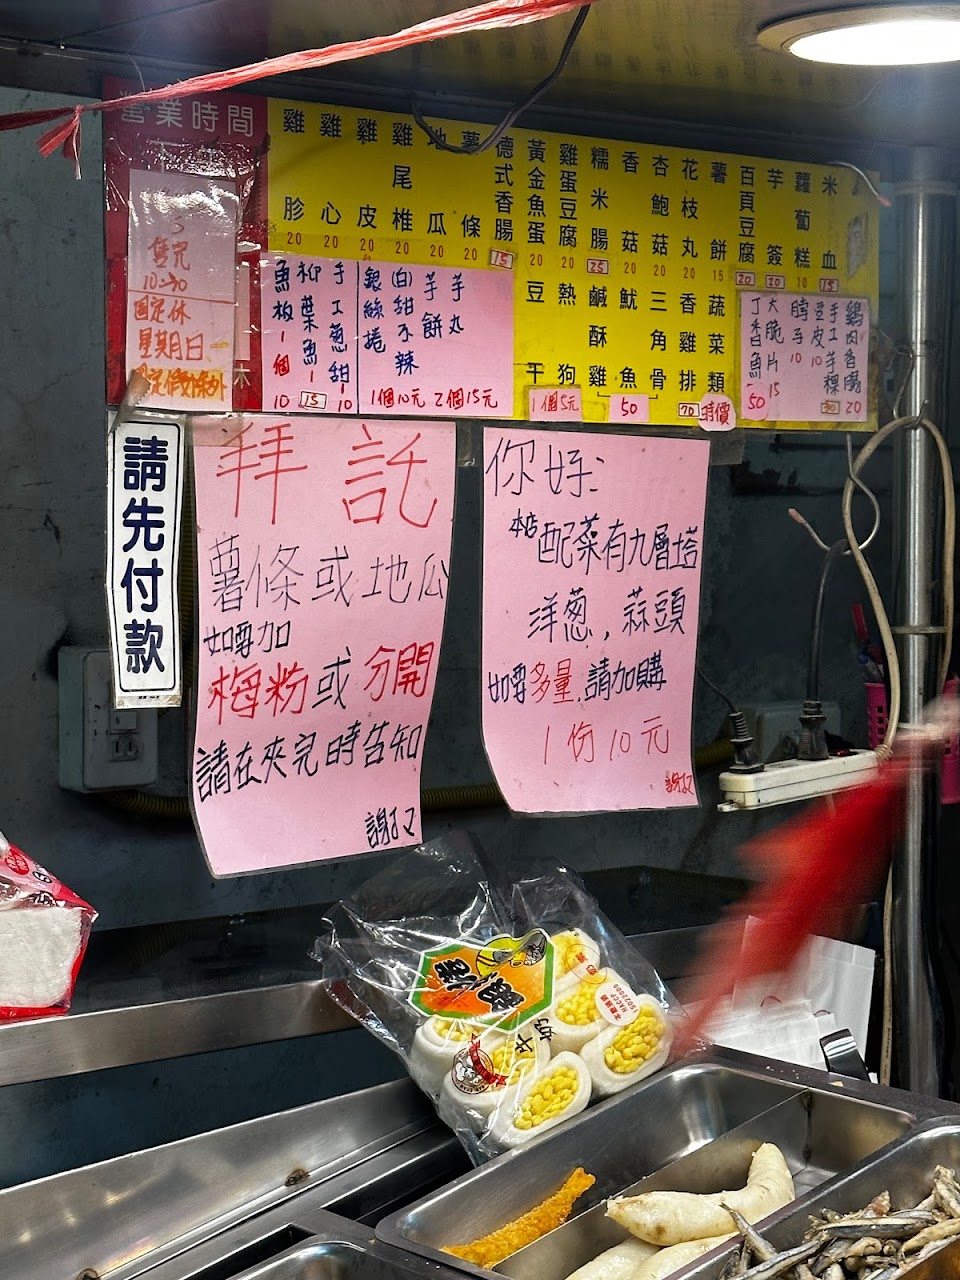 營業時間
售完
10:30
固定休
星期日
雞胗 20
雞心 20
雞皮 20
雞尾椎 20
地瓜 20
薯條 20
德式香腸 15
黃金魚蛋 20
雞蛋豆腐 20
糯米腸 25
香菇 20
杏鮑菇 20
花枝丸 20
薯餅 15
百頁豆腐 20
芋簽 20
蘿蔔糕 10
米血 15
魚板 1個 10
柳葉魚 1 15
手工葱甜 1 10
銀絲捲
(白)甜不辣
芋餅
芋丸
1個10元 2個15元
豆干 1個5元
熱狗
鹹酥雞
魷魚
三角骨
50
香雞排 70
蔬菜類
特價
丁香魚 50
大脆片 15
脖子 10
豆皮 10
手工芋粿 30
鷄肉香腸 20
請先付款
拜託
薯條或地瓜
如要加
梅粉或分開
請在夾完時告知
謝了
你好:
本店配菜有九層塔
洋葱,蒜頭
如要多量,請加購
1份10元
謝了
鍋燒
牛奶
ISO22000
HACCP